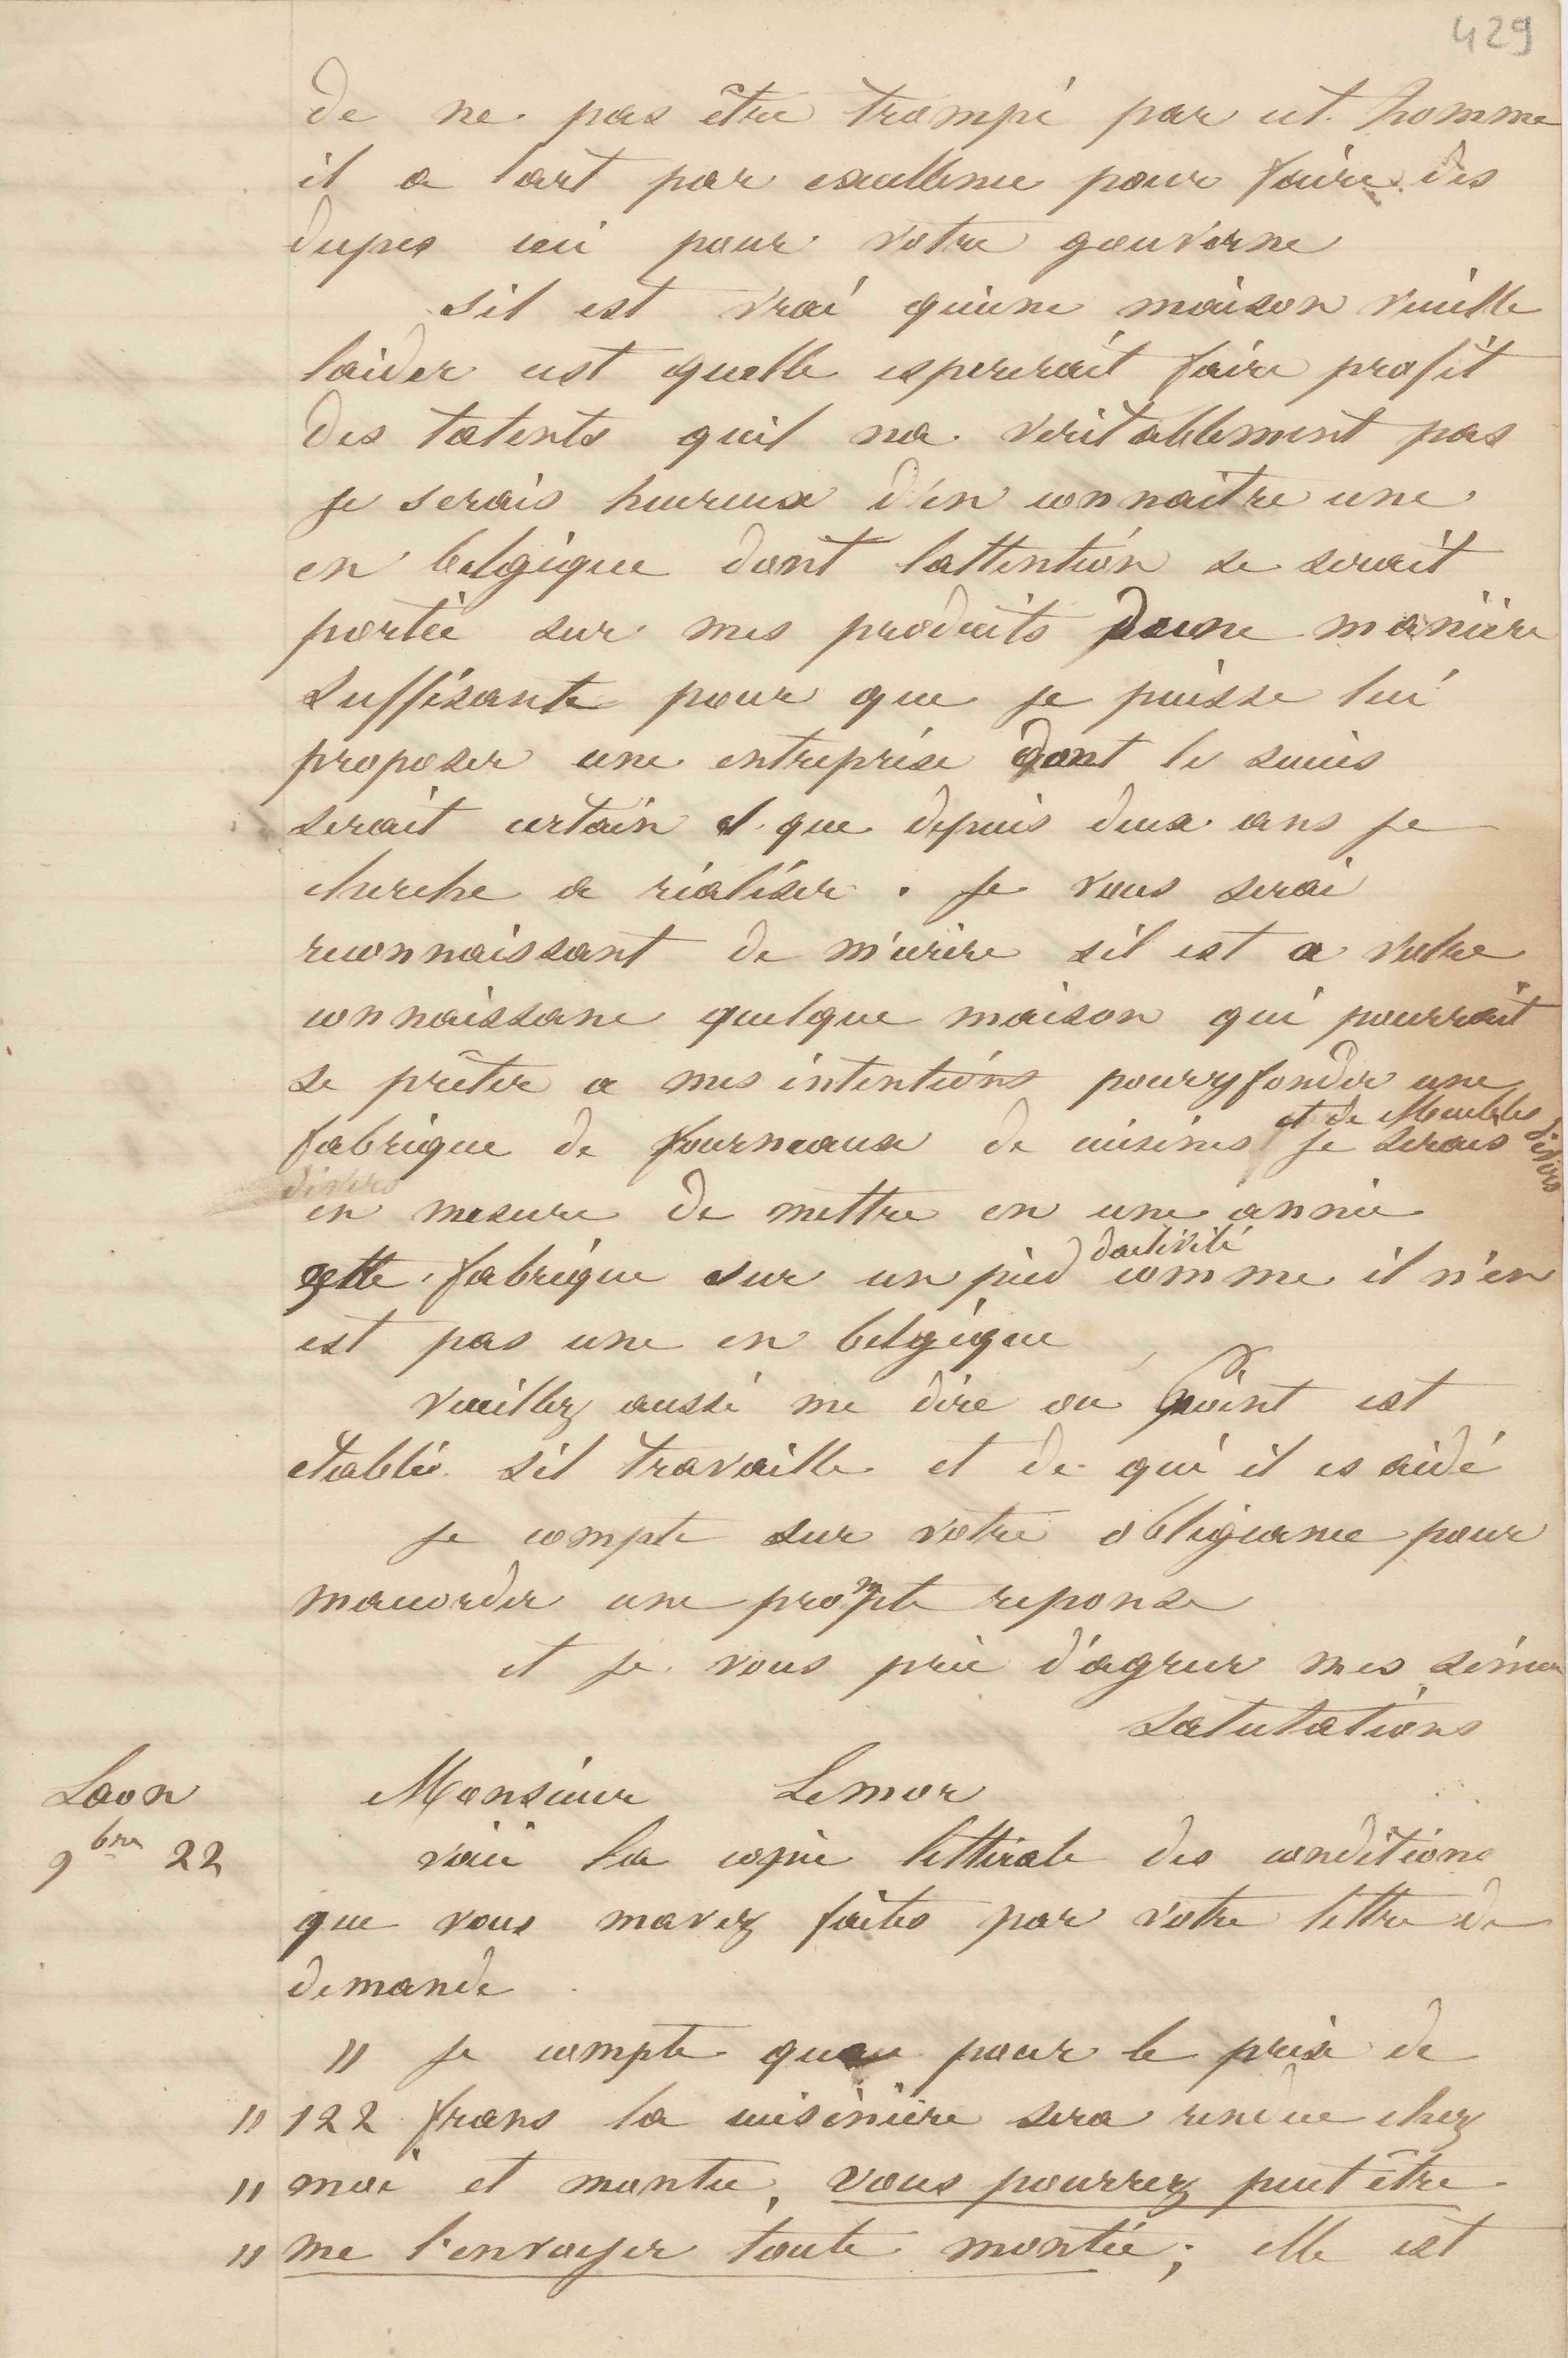 429
de ne pas être trompé par cet homme
il a lart par excellence pour faire des
dupes ceci pour votre gouverne
sil est vrai quune maison veuille
laider cest quelle espererait faire profit
des talents quil na veritablement pas
je serais heureux d'en connaitre une
en belgique dont lattention se serait
portée sur mes produits dune manière
suffisante pour que je puisse lui
proposer une entreprise dont le succès
serait certain et que depuis deux ans je
cherche a réaliser . je vous serai
reconnaissant de m'écrire sil est a votre
connaissance quelque maison qui pourrait
se prêter a mes intentions pour y fonder une
et de Meubles divers
fabrique de fourneaux de cuisines je serais
divers
en mesure de mettre en une année
dactivité
cette fabrique sur un pied comme il n'en
est pas une en belgique
veuillez aussi me dire ou point est
etabli sil travaille et de qui il es aidé
je compte sur votre obligeance pour
maccorder une prompte reponse
et je vous prie d'agreer mes sincer
salutations
Laon
9bre 22
Monsieur Lemor
voici la copie littérale des conditions
que vous mavez faites par votre lettre de
demande
" je compte que pour le prix de
" 122 frans la cuisinière sera rendue chez
" moi et montée, vous pourrez peut être
" me l'envoyer toute montée; elle est